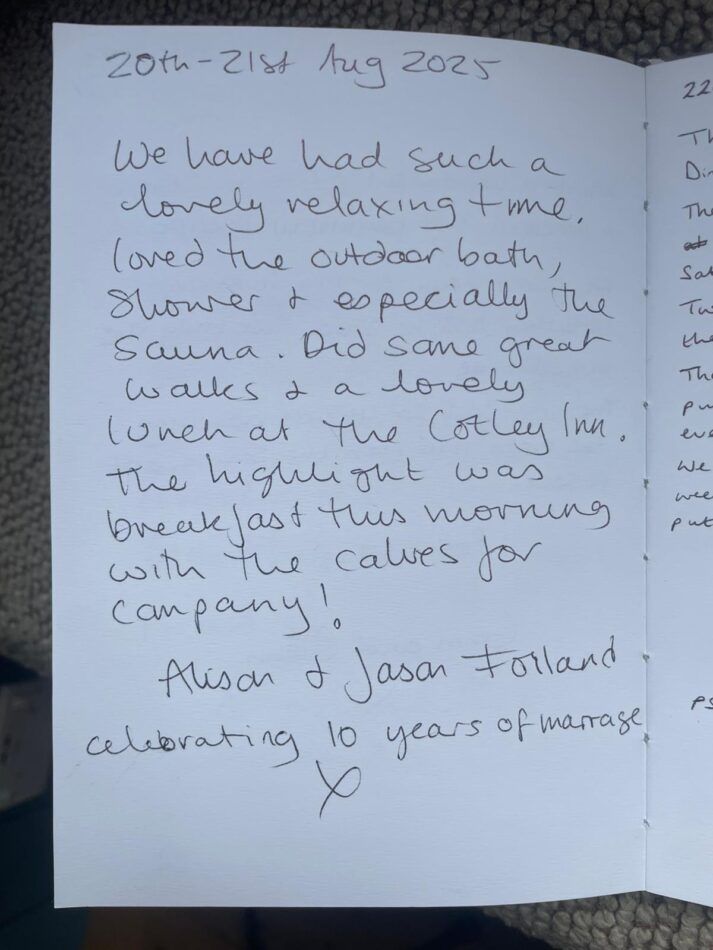 20th - 21st Aug 2025
We have had such a
lovely relaxing time.
loved the outdoor bath,
shower & especially the
sauna. Did some great
walks & a lovely
lunch at the Cotley Inn.
The highlight was
breakfast this morning
with the calves for
company!
Alison & Jason
celebrating 10 years of marrage
X
22
Th
Din
The
Sat
Tw
the
The
pu
eve
we
wee
put
PS